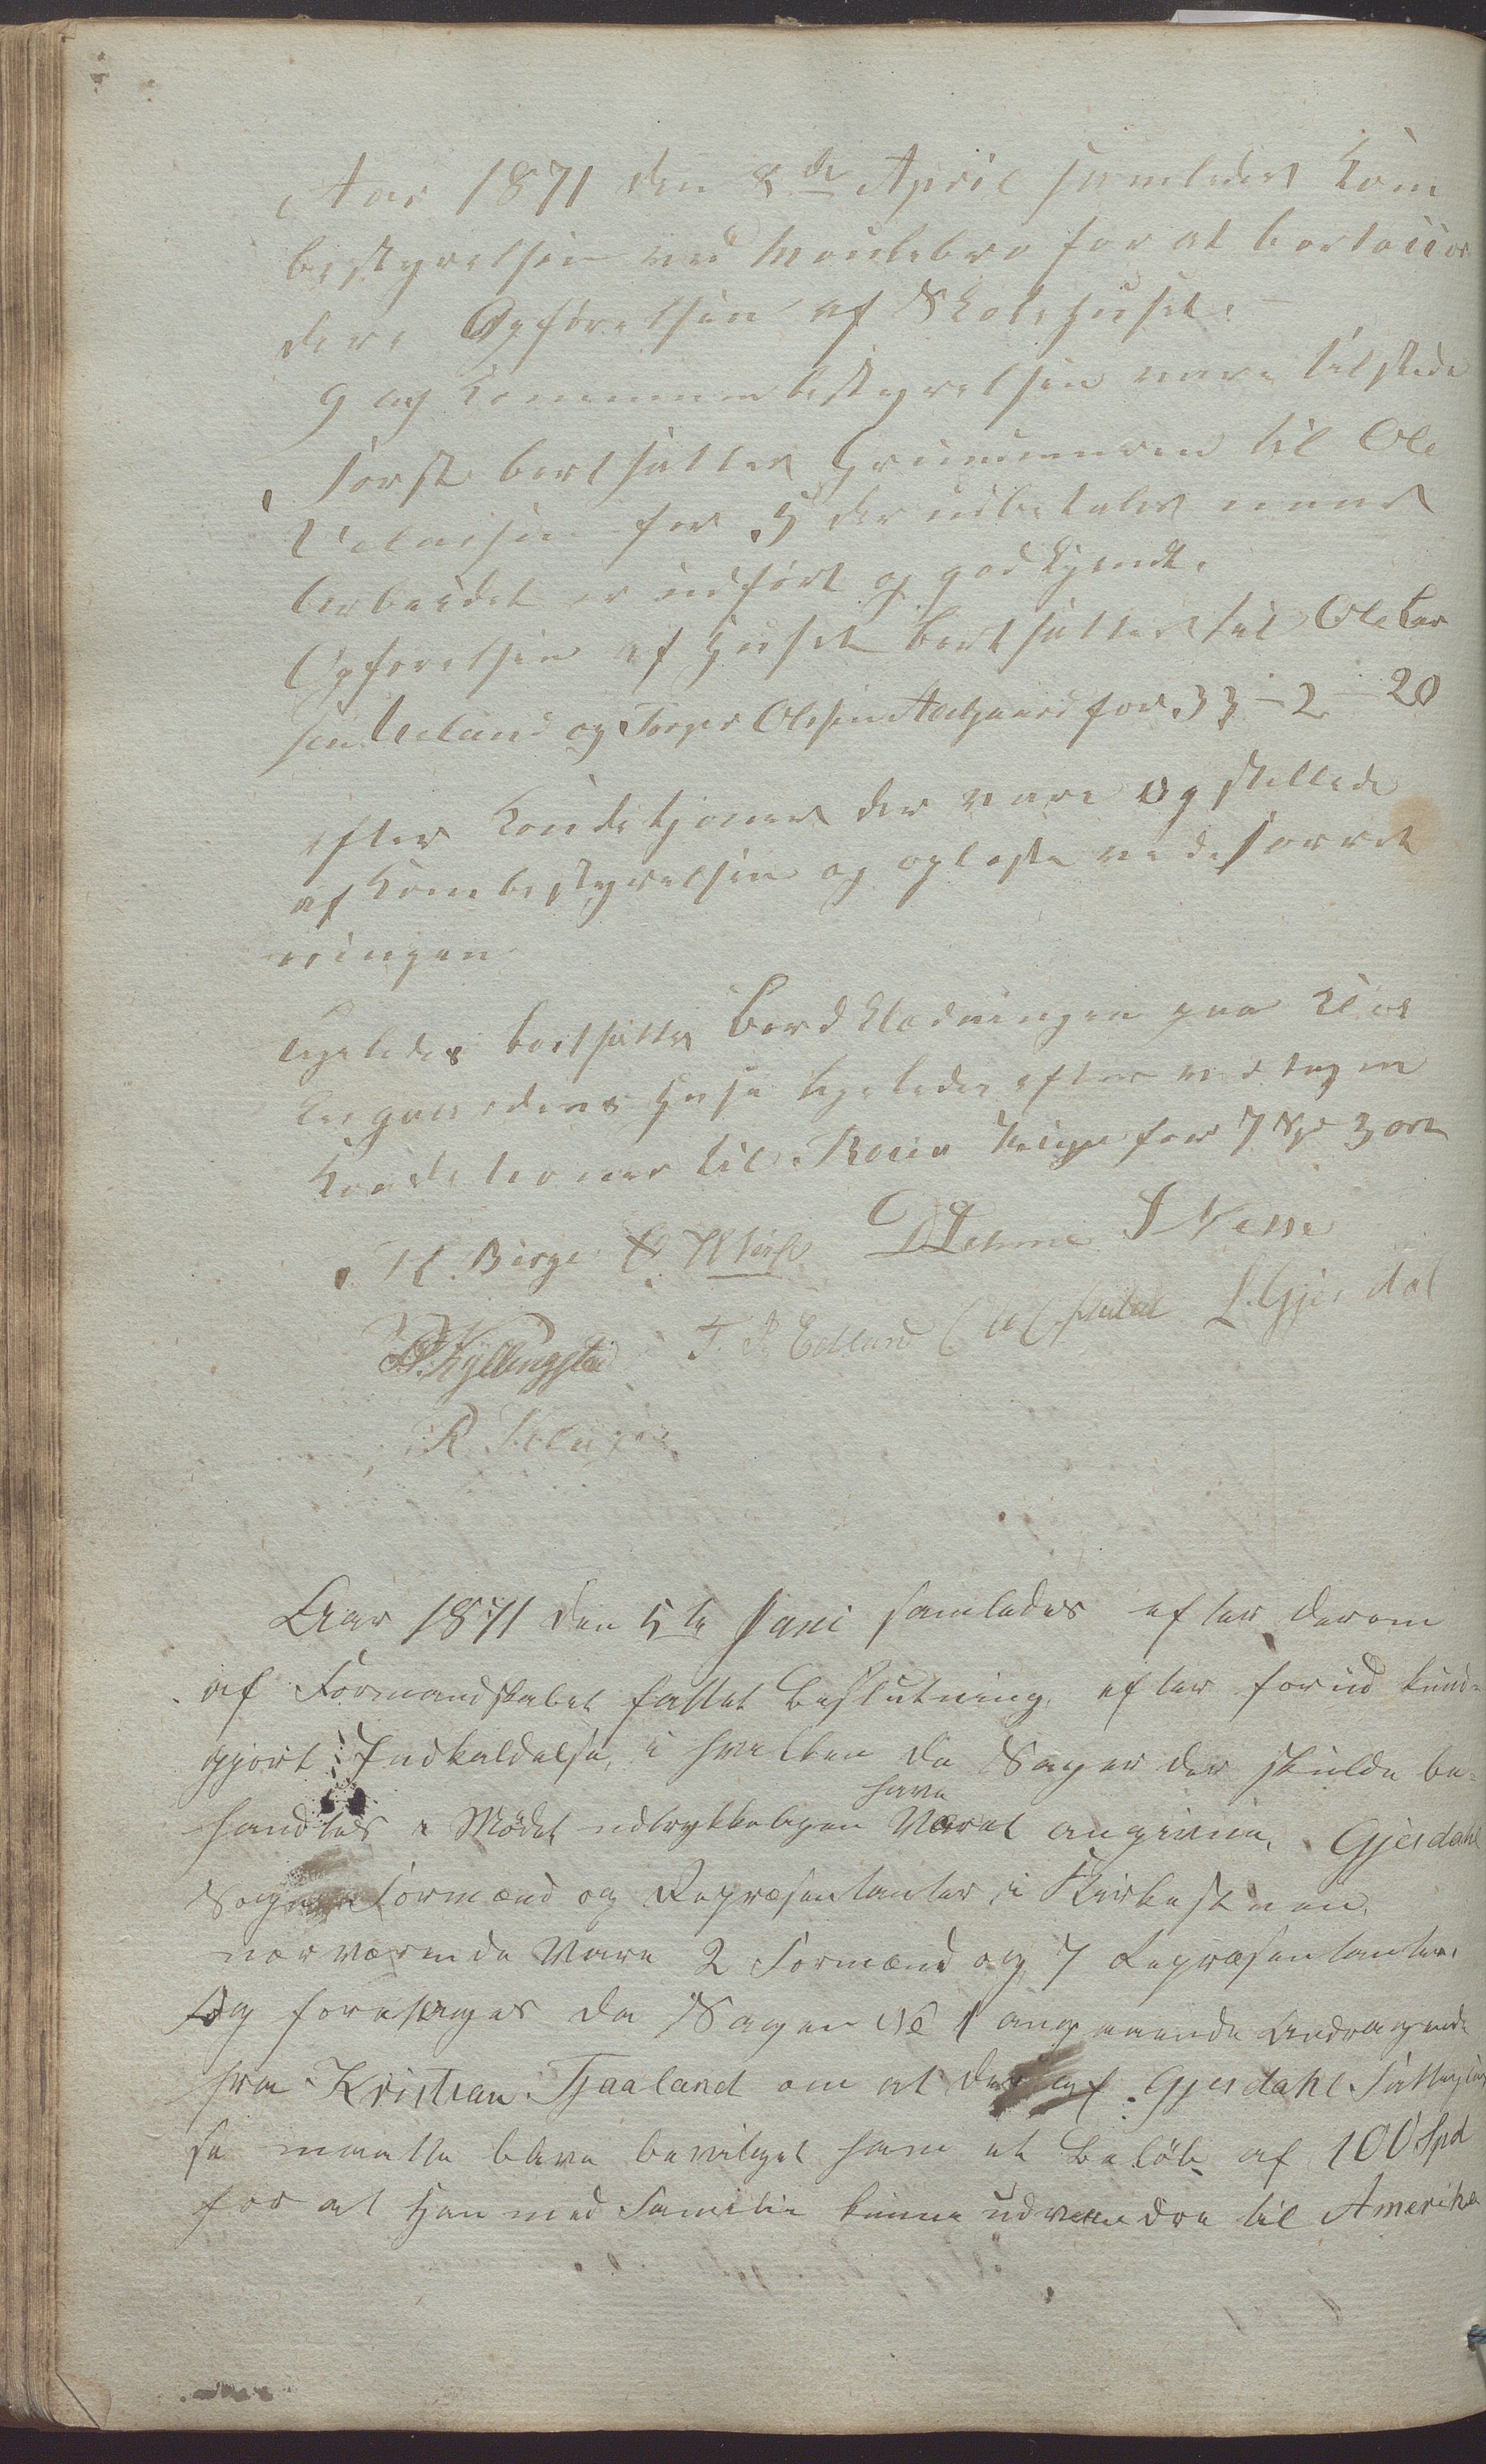 Aar 1871 den 8de April samledes Kom
bestyrelsen ved for at bortaccor
dere Opførelsen af Skolehuset.
9 af Kommunebestyrelsen vare tilstede
Først bortsattes Grundmuren til Ole
for 5 der udbetales naar
Arbeidet er udført og godkjendt.
Opførelsen af Huset bortsattes til Ole Lar
sen Ueland og Torger Olsen Aalgaard for 33 - 2 - 20
efter Kondetjoner der vare opstellede
af Kombestyrelsen og opleste ved forret
ningen
ligeledes bortsattes Bordklædningen paa
Huse ligeledes efter vedtagne
Kondetioner til for 7 Spd 3 ort
H. Birge
F. P. Edland L. Gjesdal
Kyllingstad
R.
Aar 1871 den 5te Juni samledes efter derom
af Formandskabet fattet Beslutning, efter forud kund-
gjort Indkaldelse, i hvilken de Sager der skulde be-
handles i Mødet udtrykkeligen have Været angivne, Gjesdahl
Sogns Formænd og Repræsentanter i Kirkestuen.
nærværende Vare 2 Formænd og 7 Repræsentanter.
Og foretages da Sagen No 1 angaaende Andragende
fra Kristian Tjaaland om at der af Gjesdahl Fattigkas
se maatte blive bevilget ham et Beløb af 100 Spd
for at Han med Familie kunne udvandre til Amerika